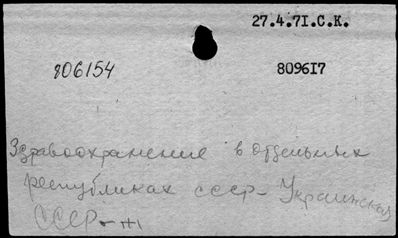 27.4.71.С.К.
806154 8096I7
Здравоохранение в отдельных
республиках СССР - Украинская
СССР - ж